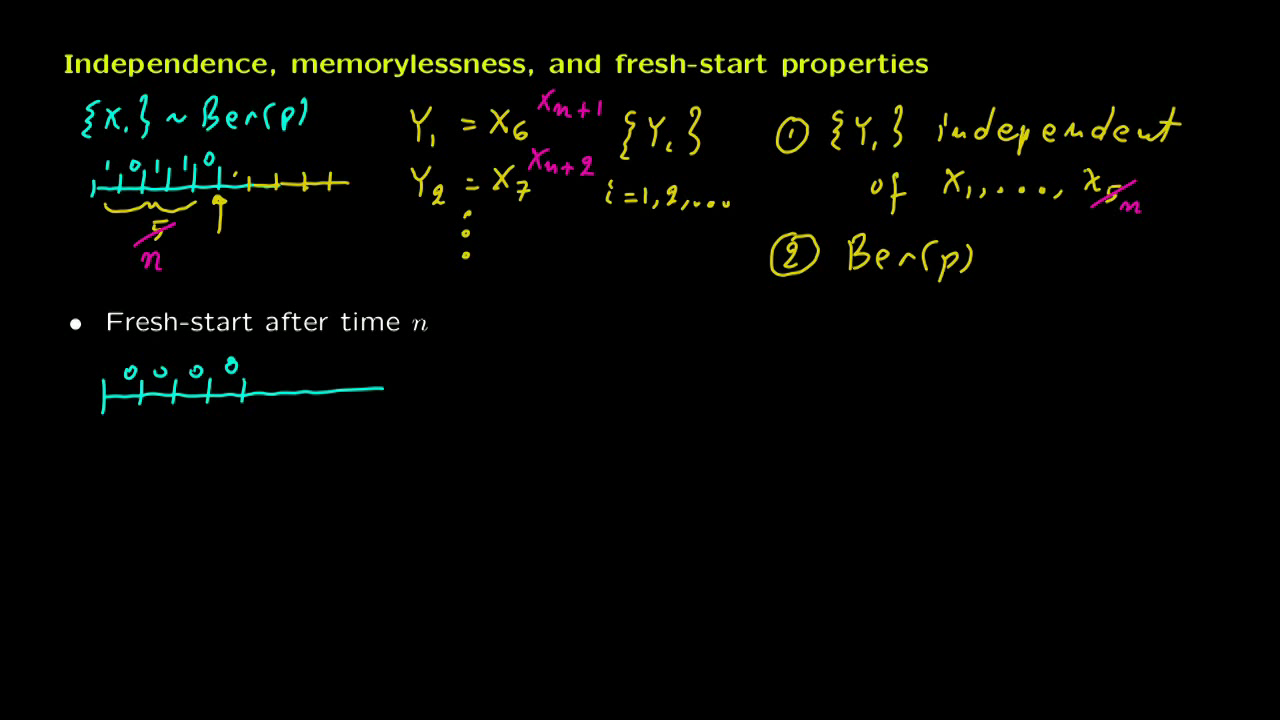 Independence, memorylessness, and fresh-start properties
{Xᵢ} ~ Ber(p)
1 0 1 1 0
5
n
Y₁ = X₆ Xₙ₊₁
Y₂ = X₇ Xₙ₊₂
{Yᵢ}
i = 1, 2, ...
① {Yᵢ} independent
of X₁, ..., X₅ n
② Ber(p)
• Fresh-start after time n
0 0 0 0